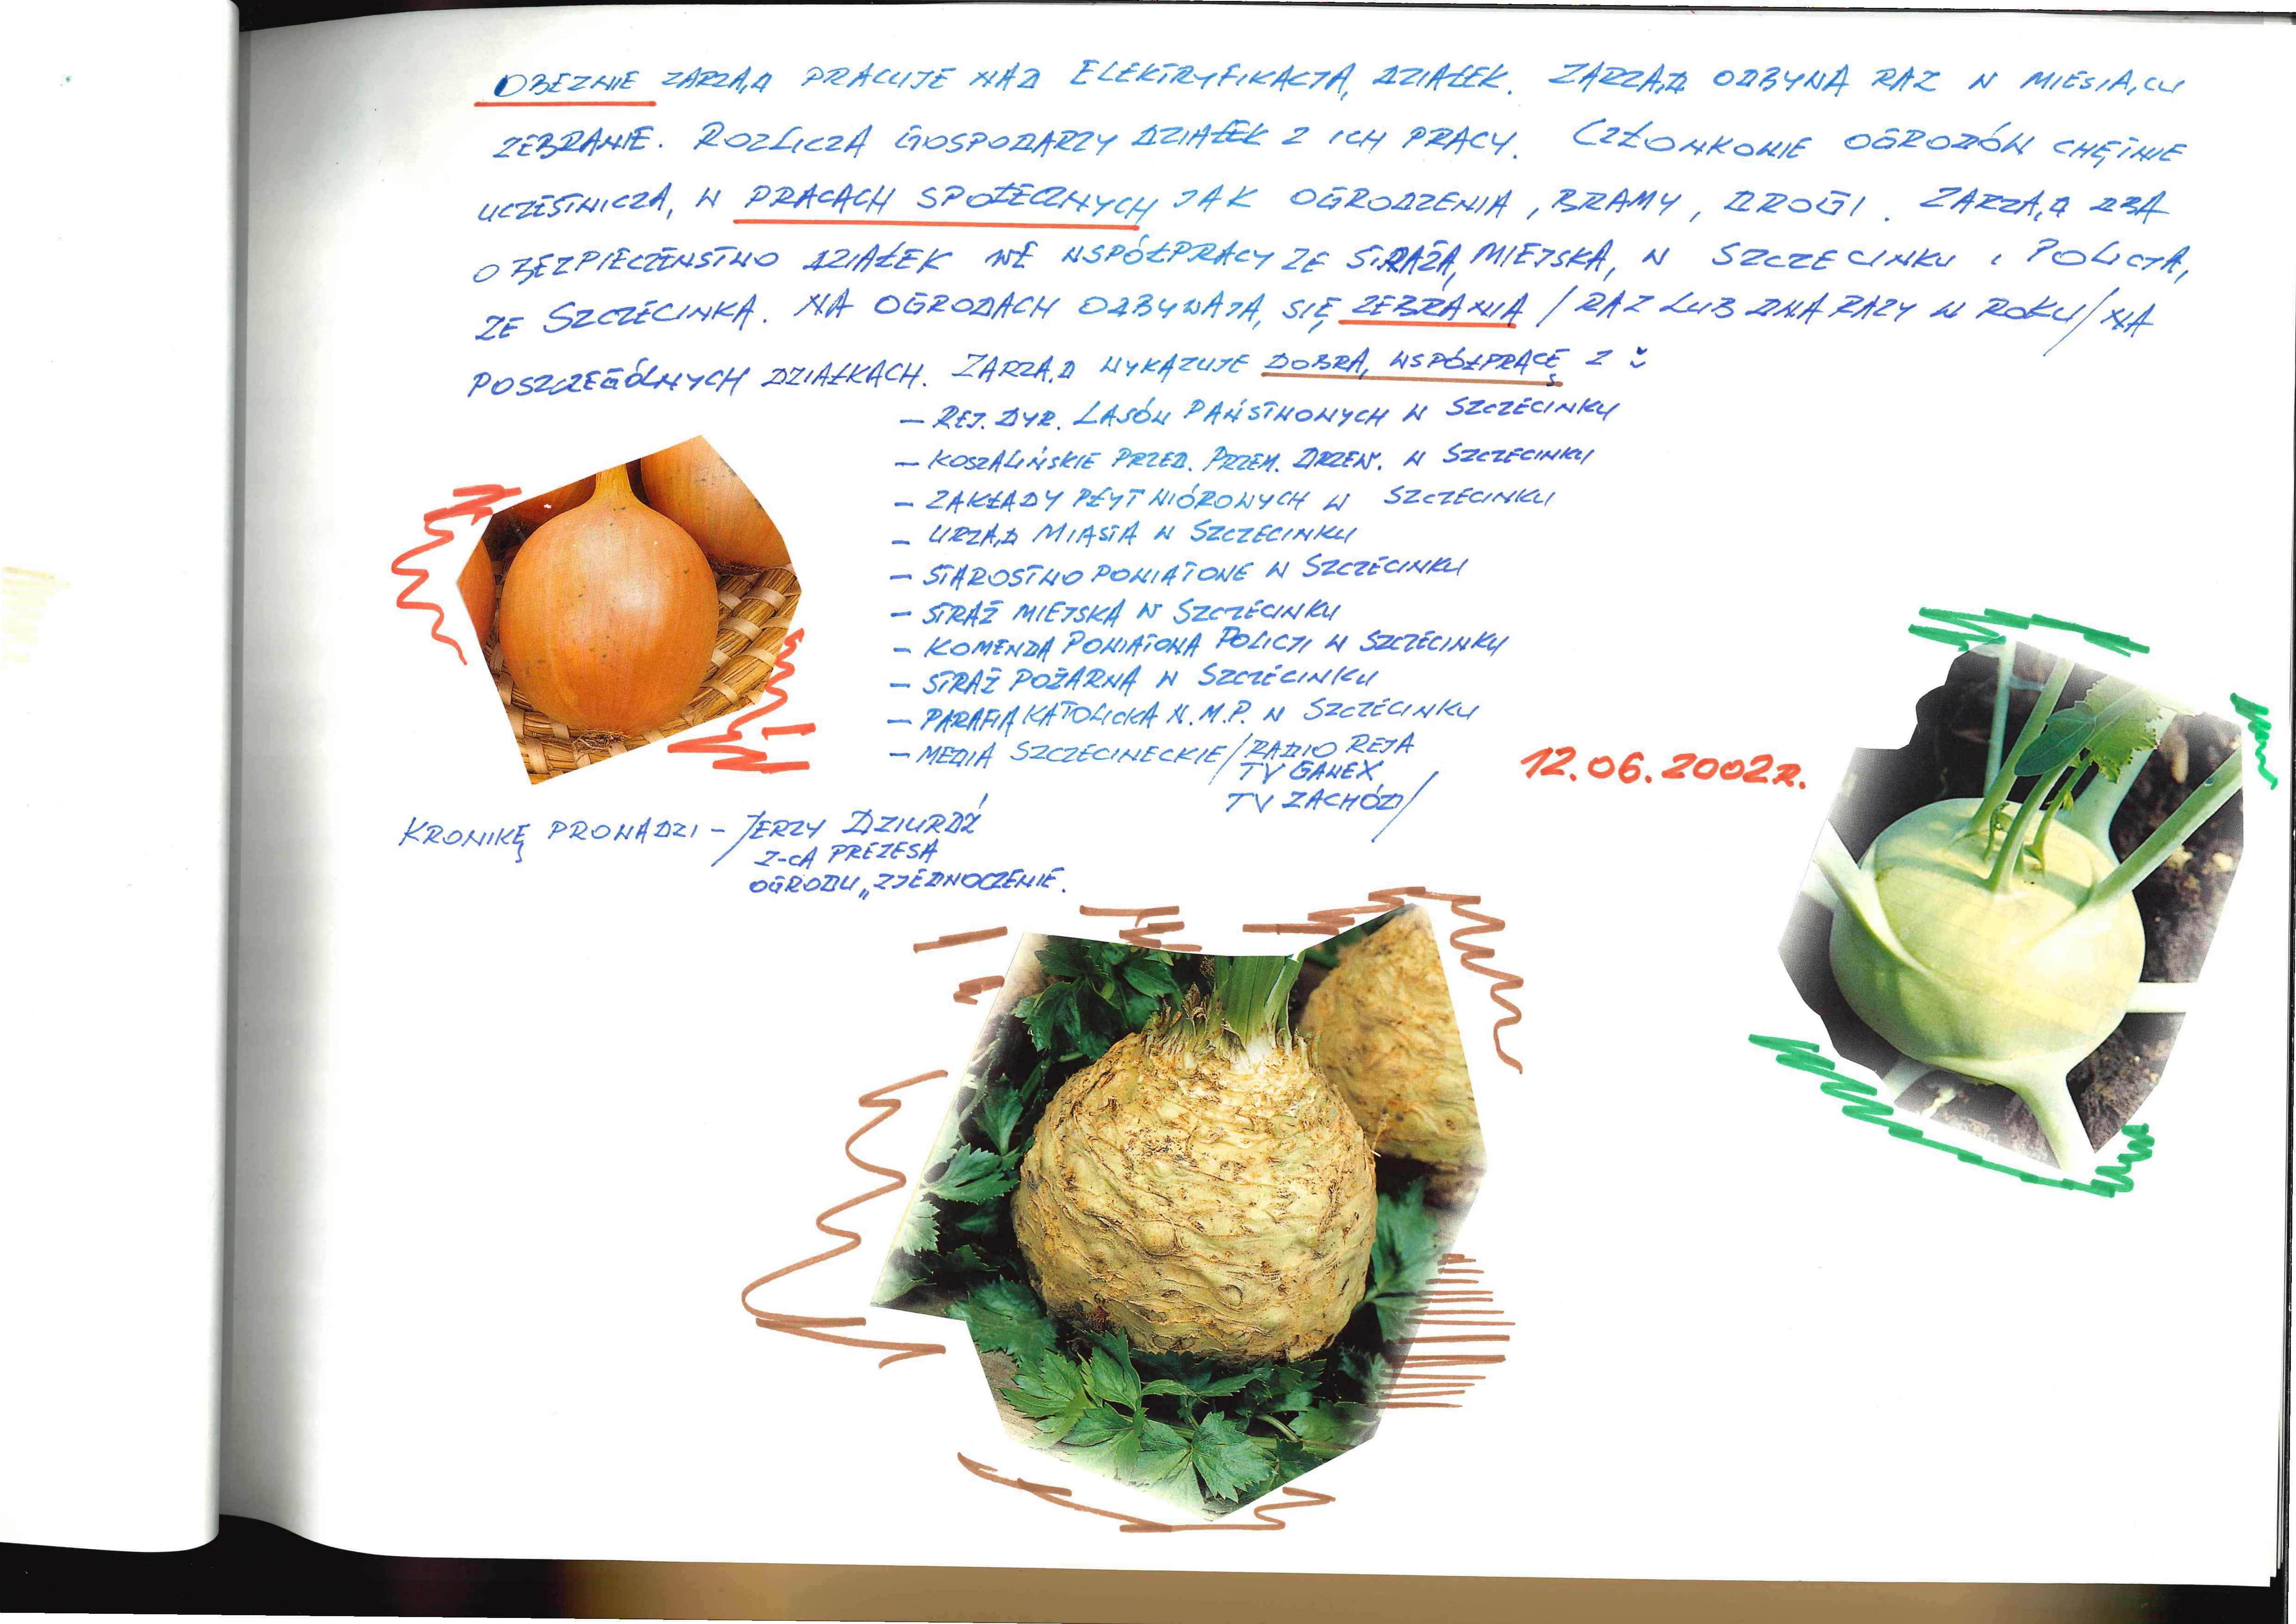 OBECNIE ZARZĄD PRACUJE NAD ELEKTRYFIKACJĄ DZIAŁEK. ZARZĄD ODBYWA RAZ W MIESIĄCU
ZEBRANIE. ROZLICZA GOSPODARZY DZIAŁEK Z ICH PRACY. CZŁONKOWIE OGRODÓW CHĘTNIE
UCZESTNICZĄ W PRACACH SPOŁECZNYCH JAK OGRODZENIA, BRAMY, DROGI. ZARZĄD DBA
O BEZPIECZEŃSTWO DZIAŁEK WE WSPÓŁPRACY ZE STRAŻĄ MIEJSKĄ W SZCZECINKU I POLICJĄ
ZE SZCZECINKA. NA OGRODACH ODBYWAJĄ SIĘ ZEBRANIA /RAZ LUB DWA RAZY W ROKU/ NA
POSZCZEGÓLNYCH DZIAŁKACH. ZARZĄD WYKAZUJE DOBRĄ WSPÓŁPRACĘ Z:
- REJ. DYR. LASÓW PAŃSTWOWYCH W SZCZECINKU
- KOSZALIŃSKIE PRZED. PRZEM. DRZEW. W SZCZECINKU
- ZAKŁADY PŁYT WIÓROWYCH W SZCZECINKU
- URZĄD MIASTA W SZCZECINKU
- STAROSTWO POWIATOWE W SZCZECINKU
- STRAŻ MIEJSKA W SZCZECINKU
- KOMENDA POWIATOWA POLICJI W SZCZECINKU
- STRAŻ POŻARNA W SZCZECINKU
- PARAFIA KATOLICKA N.M.P. W SZCZECINKU
- MEDIA SZCZECINECKIE /RADIO REJA
TV GAWEX
TV ZACHÓD/
12.06.2002R.
KRONIKĘ PROWADZI - /JERZY DZIURDŹ
Z-CA PREZESA
OGRODU „ZJEDNOCZENIE.